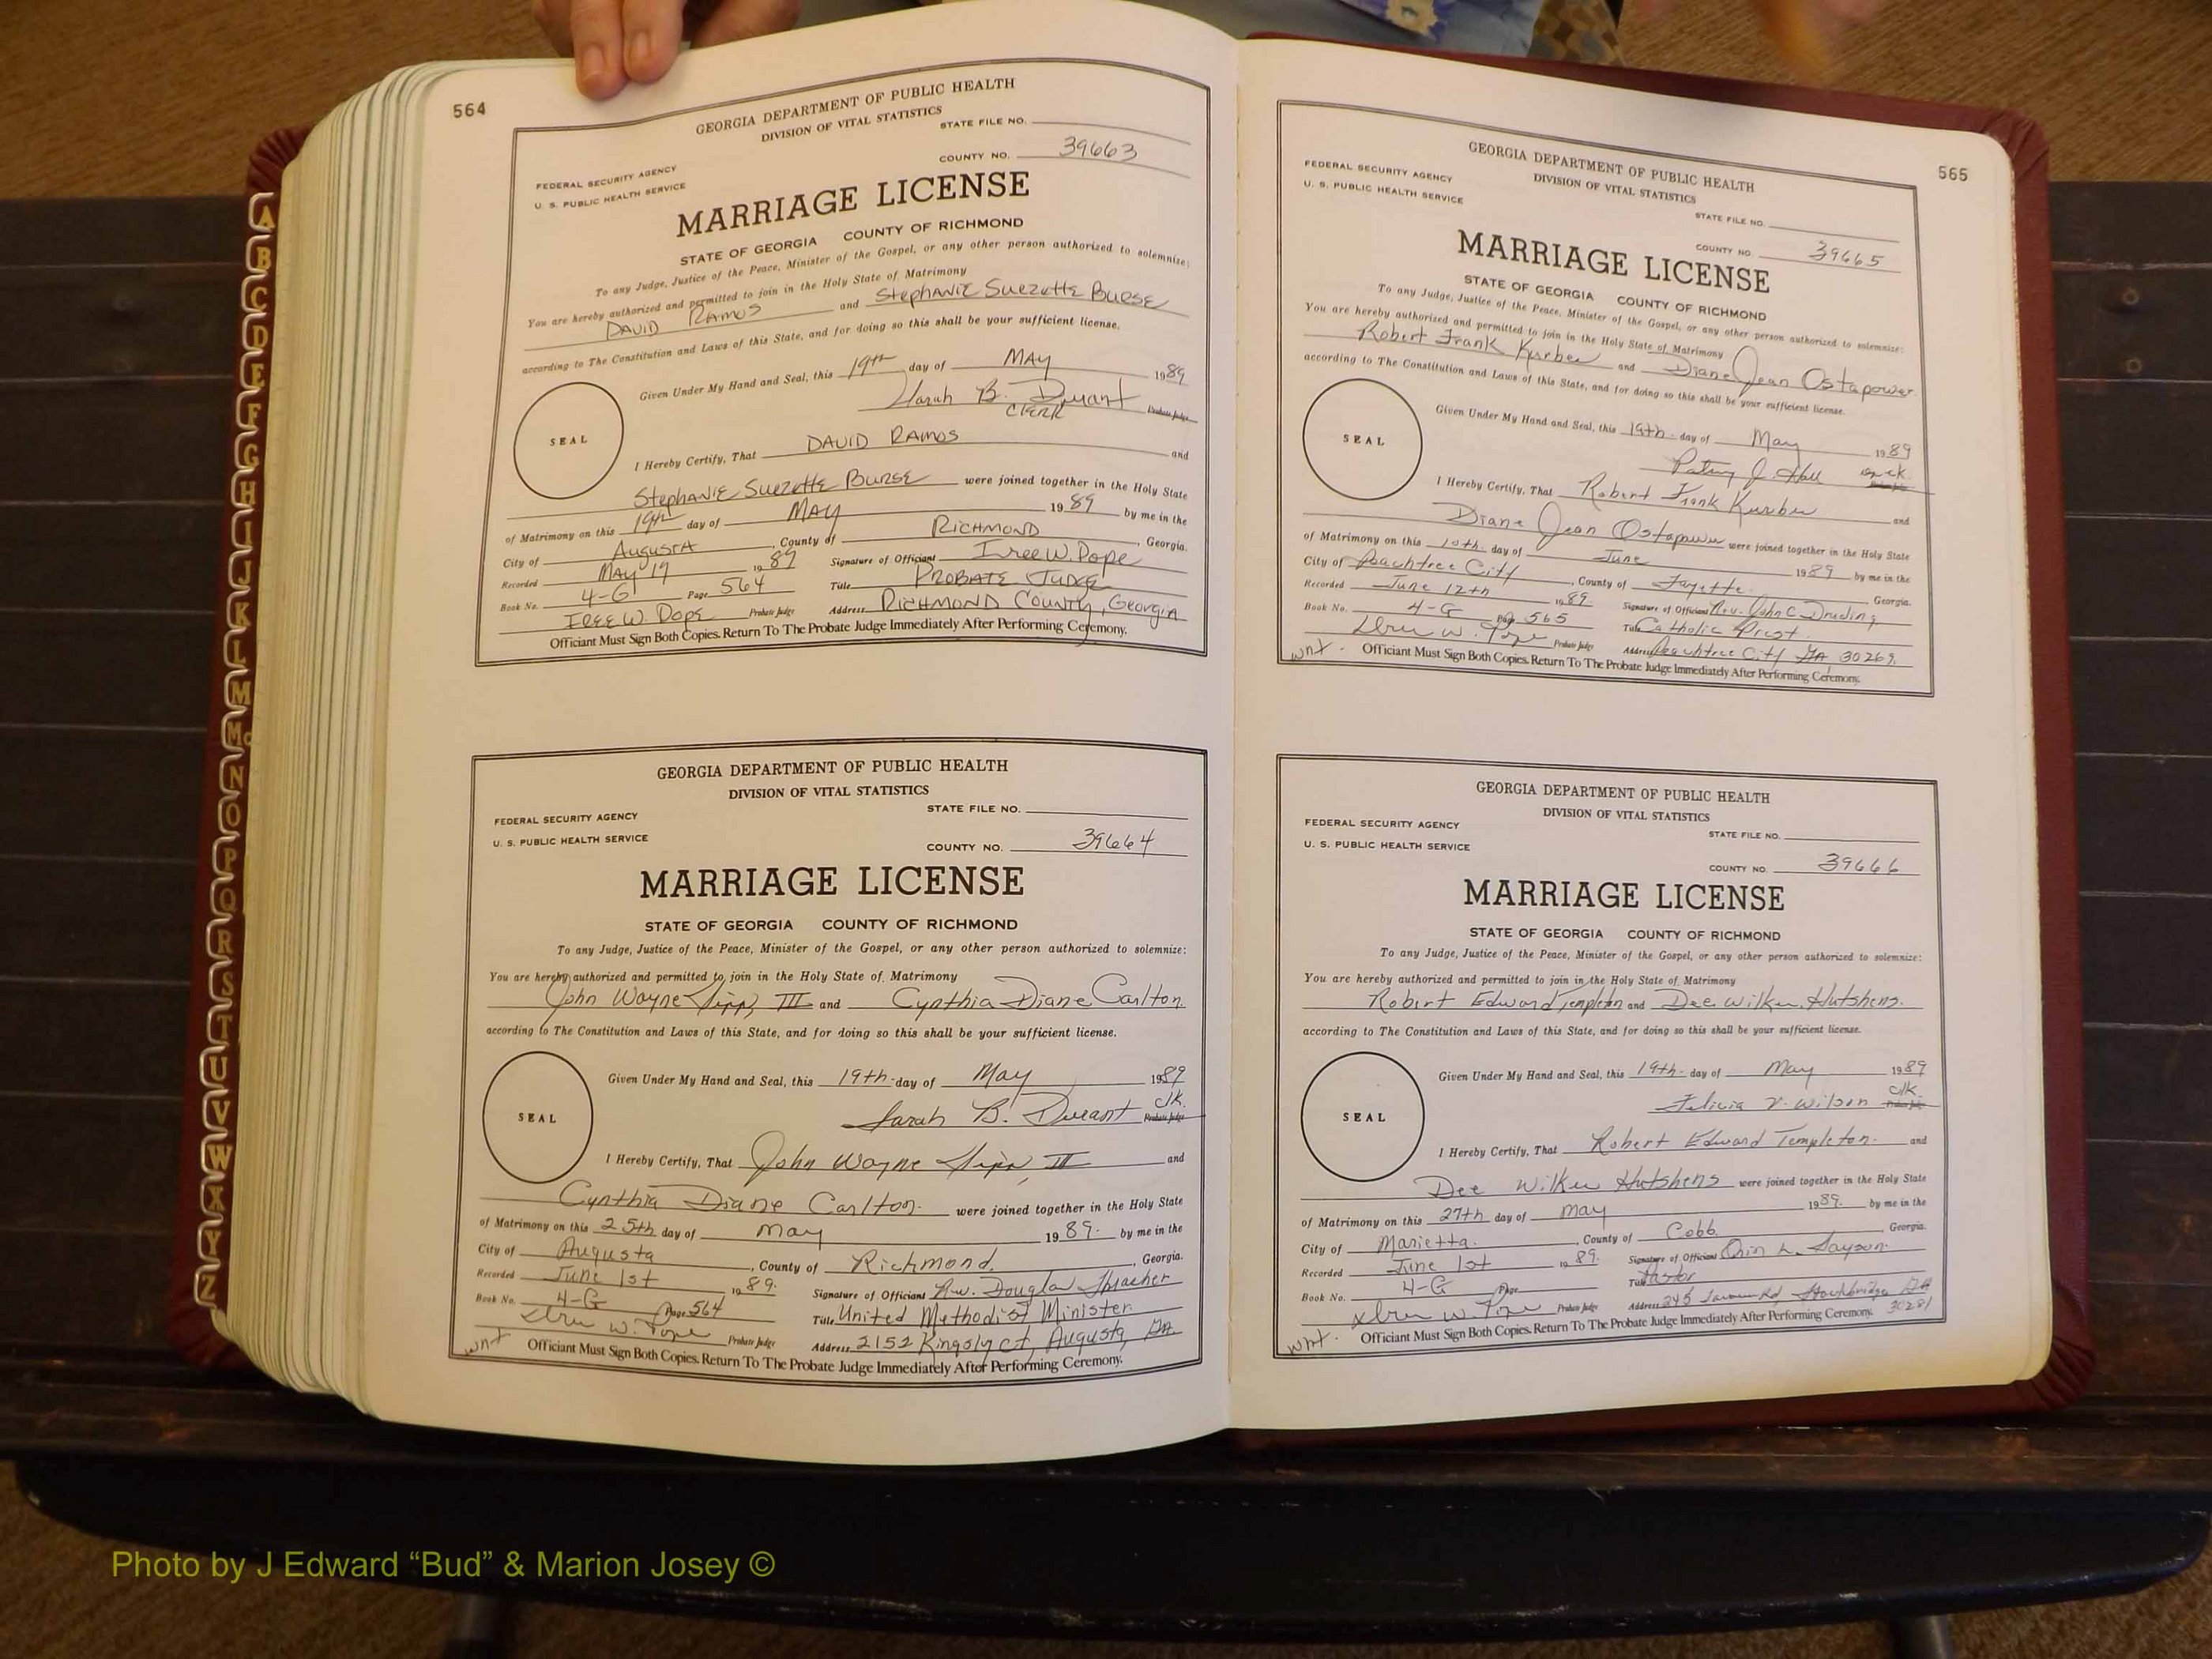 564
GEORGIA DEPARTMENT OF PUBLIC HEALTH
DIVISION OF VITAL STATISTICS
STATE FILE NO.
COUNTY NO. 39663
FEDERAL SECURITY AGENCY
U. S. PUBLIC HEALTH SERVICE
MARRIAGE LICENSE
STATE OF GEORGIA COUNTY OF RICHMOND
To any Judge, Justice of the Peace, Minister of the Gospel, or any other person authorized to solemnize:
You are hereby authorized and permitted to join in the Holy State of Matrimony
DAVID RAMOS and Stephanie Suezette Burse
according to The Constitution and Laws of this State, and for doing so this shall be your sufficient license.
Given Under My Hand and Seal, this 19th day of MAY 1989
Sarah B. Durant Probate Judge
CLERK
SEAL
I Hereby Certify, That DAVID RAMOS and
Stephanie Suezette Burse were joined together in the Holy State
of Matrimony on this 19th day of MAY 1989 by me in the
City of Augusta, County of Richmond, Georgia.
Recorded May 19 1989 Signature of Officiant Iree W. Pope
Book No. 4-G Page 564 Title PROBATE JUDGE
Iree W. Pope Probate Judge Address Richmond County, Georgia
Officiant Must Sign Both Copies. Return To The Probate Judge Immediately After Performing Ceremony.
GEORGIA DEPARTMENT OF PUBLIC HEALTH
DIVISION OF VITAL STATISTICS
STATE FILE NO.
FEDERAL SECURITY AGENCY
U. S. PUBLIC HEALTH SERVICE
COUNTY NO. 39664
MARRIAGE LICENSE
STATE OF GEORGIA COUNTY OF RICHMOND
To any Judge, Justice of the Peace, Minister of the Gospel, or any other person authorized to solemnize:
You are hereby authorized and permitted to join in the Holy State of Matrimony
John Wayne III and Cynthia Diane Carlton
according to The Constitution and Laws of this State, and for doing so this shall be your sufficient license.
Given Under My Hand and Seal, this 19th day of May 1989
Sarah B. Durant clk. Probate Judge
SEAL
I Hereby Certify, That John Wayne and
Cynthia Diane Carlton were joined together in the Holy State
of Matrimony on this 25th day of May 1989. by me in the
City of Augusta, County of Richmond, Georgia.
Recorded June 1st 1989. Signature of Officiant Douglas Thracher
Book No. 4-G Page 564 Title United Methodist Minister
Iree W. Pope Probate Judge Address 2152 Kingsly ct, Augusta, GA.
wnt Officiant Must Sign Both Copies. Return To The Probate Judge Immediately After Performing Ceremony.
565
GEORGIA DEPARTMENT OF PUBLIC HEALTH
DIVISION OF VITAL STATISTICS
FEDERAL SECURITY AGENCY
U. S. PUBLIC HEALTH SERVICE
STATE FILE NO.
COUNTY NO. 39665
MARRIAGE LICENSE
STATE OF GEORGIA COUNTY OF RICHMOND
To any Judge, Justice of the Peace, Minister of the Gospel, or any other person authorized to solemnize:
You are hereby authorized and permitted to join in the Holy State of Matrimony
Robert Frank and Diane Jean Ostapower
according to The Constitution and Laws of this State, and for doing so this shall be your sufficient license.
Given Under My Hand and Seal, this 19th day of May 1989
J. Hall
SEAL
I Hereby Certify, That Robert Frank and
Diane Jean Ostapower were joined together in the Holy State
of Matrimony on this 10th day of June 1989 by me in the
City of Peachtree City, County of Fayette Georgia.
Recorded June 12th 1989 Signature of Officiant Rev. John C. Druding
Book No. 4-G Page 565 Title Catholic Priest
Iree W. Pope Probate Judge Address Peachtree City GA 30269
wnt. Officiant Must Sign Both Copies. Return To The Probate Judge Immediately After Performing Ceremony.
GEORGIA DEPARTMENT OF PUBLIC HEALTH
DIVISION OF VITAL STATISTICS
FEDERAL SECURITY AGENCY
STATE FILE NO.
U. S. PUBLIC HEALTH SERVICE
COUNTY NO. 39666
MARRIAGE LICENSE
STATE OF GEORGIA COUNTY OF RICHMOND
To any Judge, Justice of the Peace, Minister of the Gospel, or any other person authorized to solemnize:
You are hereby authorized and permitted to join in the Holy State of Matrimony
Robert Edward Templeton and Dee Hutshens.
according to The Constitution and Laws of this State, and for doing so this shall be your sufficient license.
Given Under My Hand and Seal, this 19th day of May 1989
Felicia V. Wilson clk. Probate Judge
SEAL
I Hereby Certify, That Robert Edward Templeton. and
Dee Hutshens were joined together in the Holy State
of Matrimony on this 27th day of May 1989. by me in the
City of Marietta., County of Cobb, Georgia.
Recorded June 1st 1989. Signature of Officiant
Book No. 4-G Page Title Pastor
Iree W. Pope Probate Judge Address Rd Stockbridge GA 30281
wnt. Officiant Must Sign Both Copies. Return To The Probate Judge Immediately After Performing Ceremony.
A
B
C
D
E
F
G
H
I
J
K
L
M
Mc
N
O
P
Q
R
S
T
U
V
W
X
Y
Z
Photo by J Edward “Bud” & Marion Josey ©